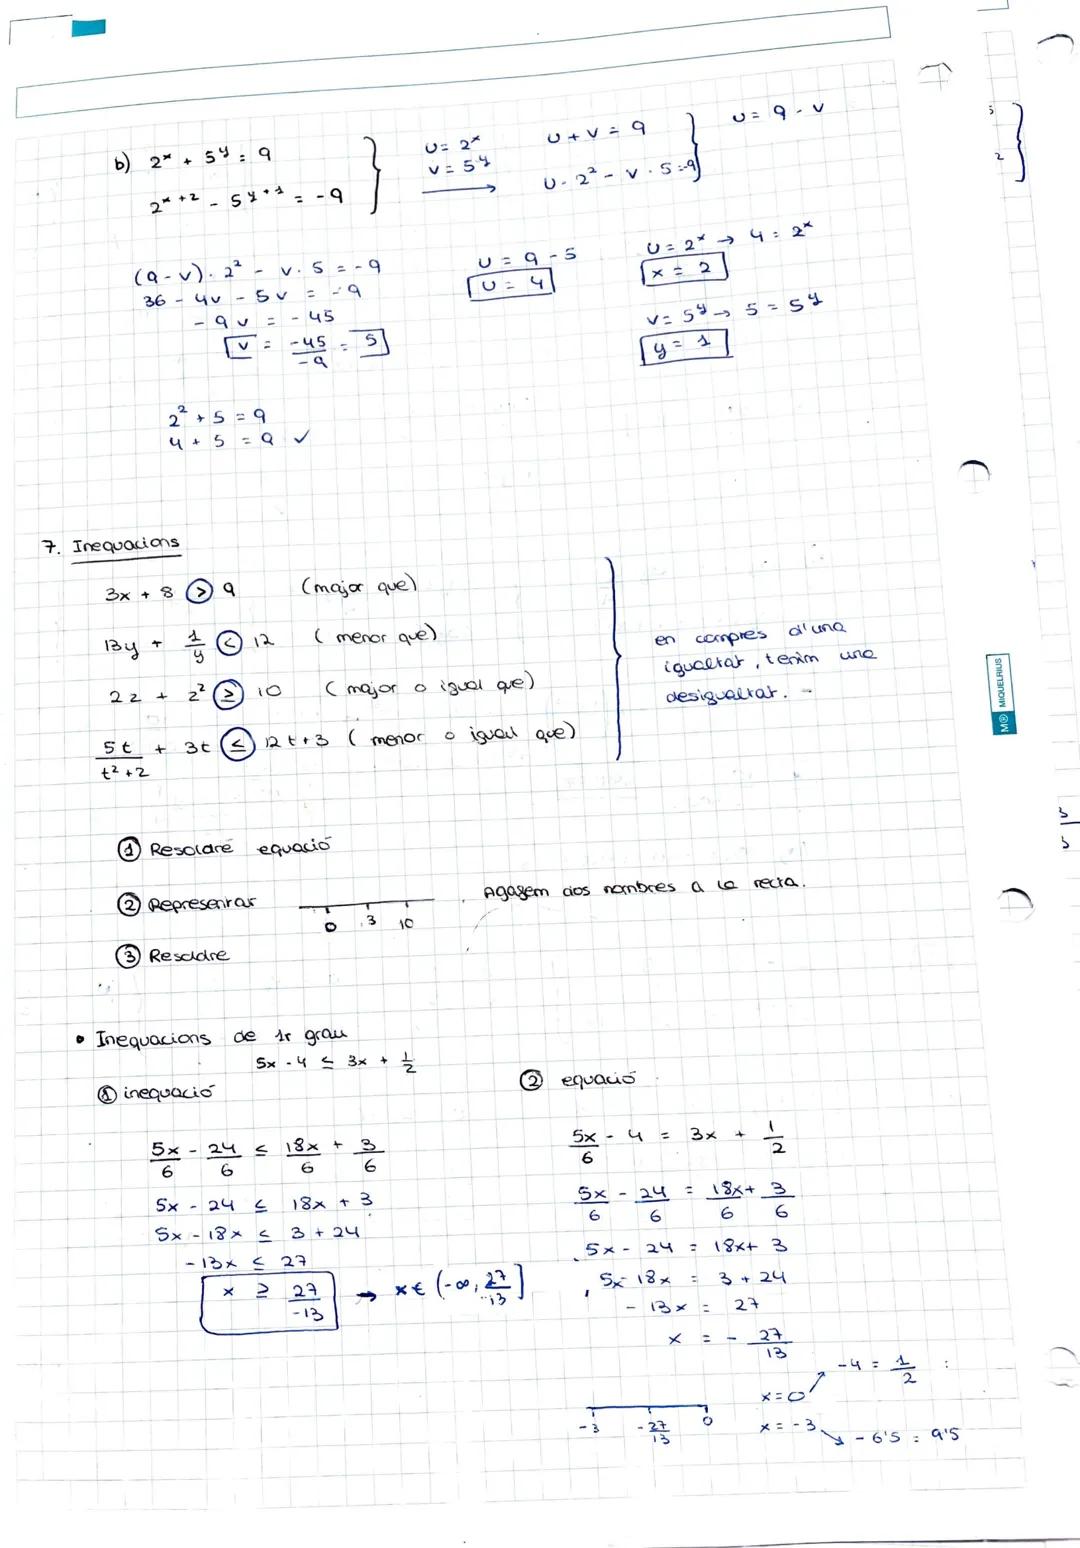 b) 2^x + 5^y = 9
2^(x+2) - 5^(y+1) = -9
U = 2^x
V = 5^y
U + V = 9
U · 2² - V · 5 = -9
U = 9 - V
(9 - V) · 2² - V · 5 = -9
36 - 4V - 5V = -9
- 9V = - 45
V = -45/-9 = 5
U = 9 - 5
U = 4
U = 2^x → 4 = 2^x
x = 2
V = 5^y → 5 = 5^y
y = 1
2² + 5 = 9
4 + 5 = 9 ✓
7. Inequacions
3x + 8 > 9 (major que)
13y + 1/y < 12 (menor que)
2z + z² ≥ 10 (major o igual que)
5t/(t²+2) + 3t ≤ 12t+3 (menor o igual que)
en compres d'una
igualtat, tenim una
desigualtat.
① Resoldre equació
② Representar
0 3 10
Agafem dos nombres a la recta.
③ Resoldre
• Inequacions de 1r grau
5x - 4 ≤ 3x + 1/2
① inequació
5x/6 - 24/6 ≤ 18x/6 + 3/6
5x - 24 ≤ 18x + 3
5x - 18x ≤ 3 + 24
- 13x ≤ 27
x ≥ 27/-13 → x ∈ (-∞, 27/-13]
② equació
5x/6 - 4 = 3x + 1/2
5x/6 - 24/6 = 18x/6 + 3/6
5x - 24 = 18x + 3
5x - 18x = 3 + 24
- 13x = 27
x = - 27/13
-3 -27/13 0
x = 0 → -4 = 1/2
x = -3 → - 6'5 = 9'5
MIQUELRIUS